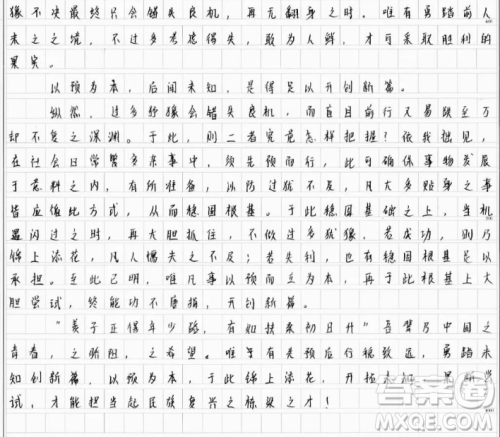 豫不决最终只会错失良机，再无翻身之时。唯有勇踏前人
未之之境，不过多考虑得失，敢为人鲜，才可采取胜利的
果实。
以预为本，后闯未知，是得足以开创新篇。
纵然，过多犹豫会错失良机，而盲目前行又易跌至万
却不复之深渊。于此，则二者究竟怎样把握？依我拙见，
在社会日常繁多杂事中，须先预而行，此可确保事物发展
于意料之内，有所准备，以防过犹不及，凡大多贴身之事
皆应依此方式，从而稳固根基。于此稳固基础之上，当机
遇闪过之时，再大胆抓住，不做过多犹豫，若成功，则乃
锦上添花，凡人惧失之不及；若失利，也有稳固根基足以
承担。至此已明，唯凡事以预而立为本，再于此根基上大
胆尝试，终能功不唐捐，开创新篇。
“美子正值年少路，有如扶桑初日升”吾辈乃中国之
青春，之骄阳，之希望。唯有先预后行稳致远，勇踏未
知创新篇，以预为本，于此锦上添花，开拓
试，才能担当起民族复兴之栋梁之才！
答案圈
MXQE.COM